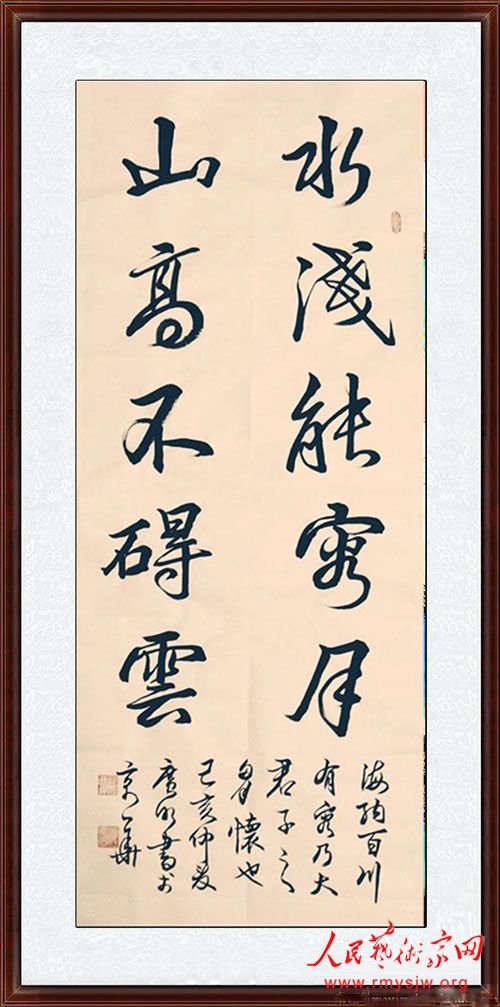 水淺能容月
山高不碍雲
海納百川
有容乃大
君子之
胸懷也
己亥仲夏
广明書于
京華
人民藝術家网
www.rmysjw.org